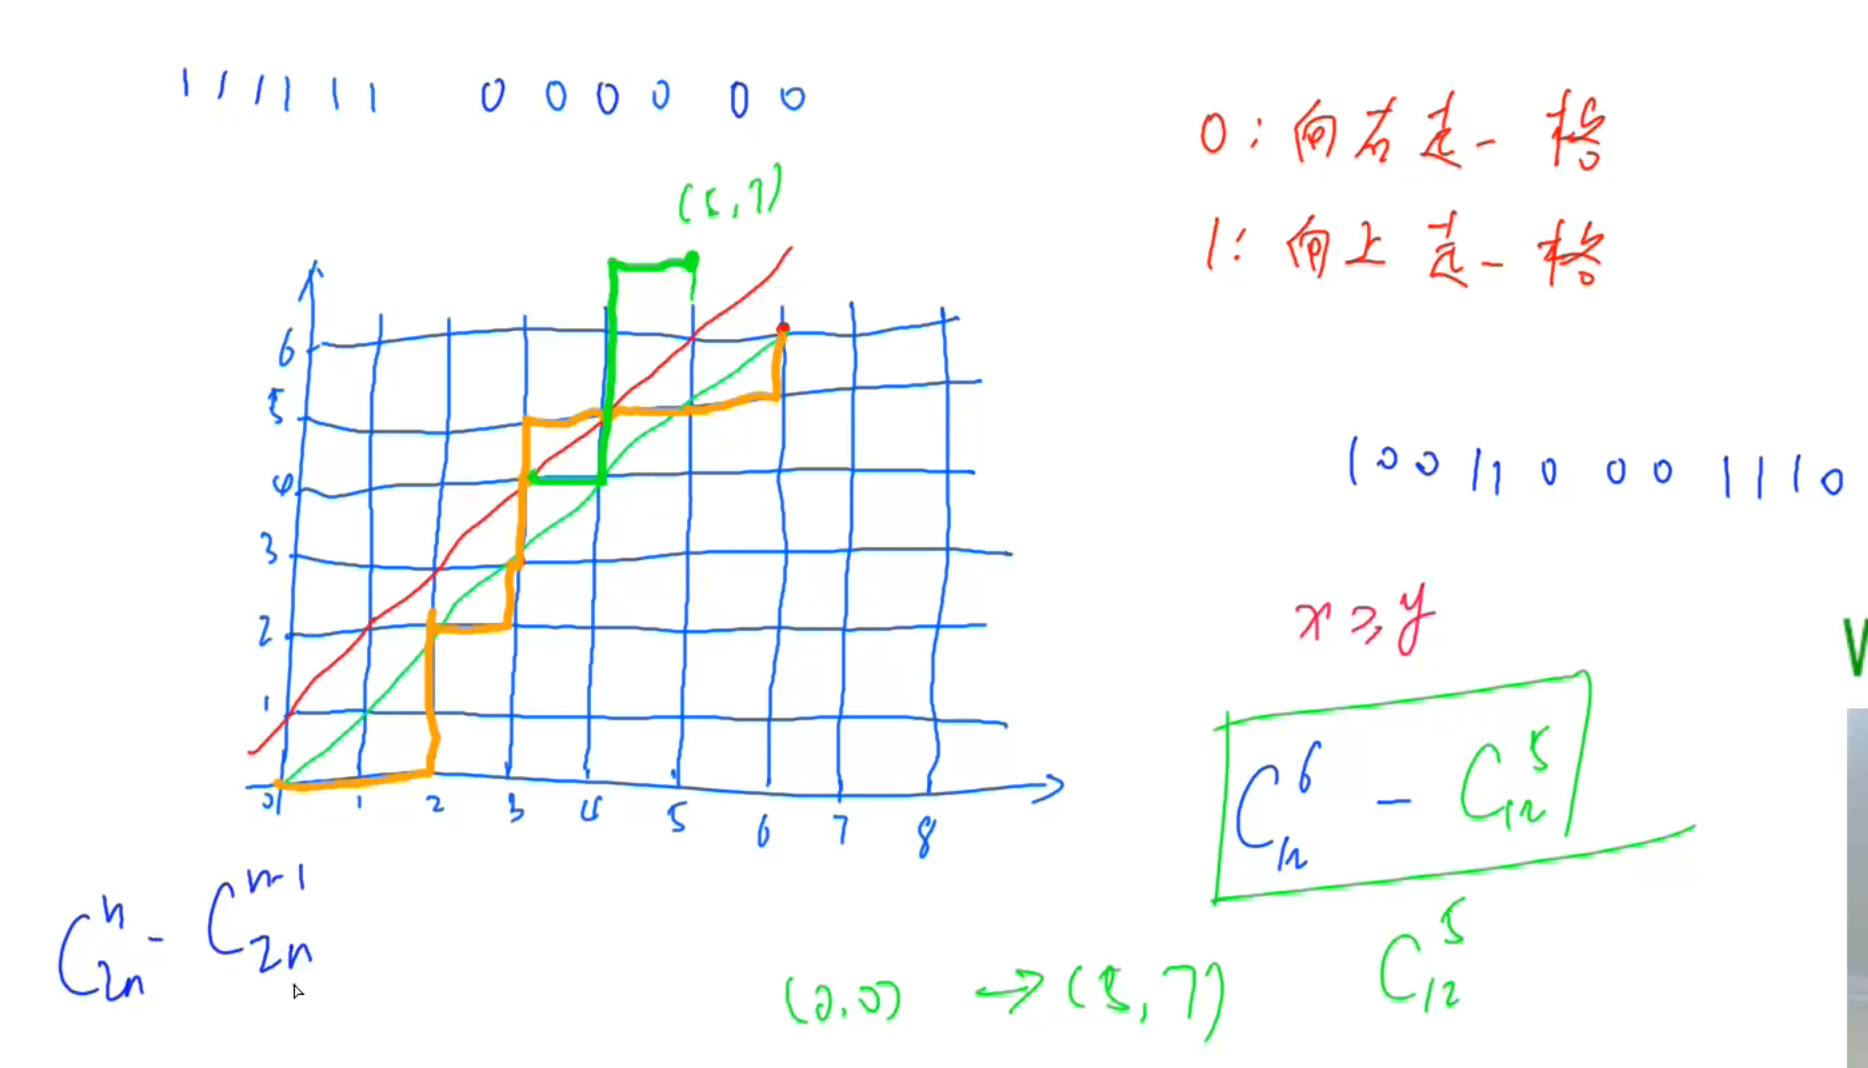 111111 000000
0：向右走一格
1：向上走一格
(5,7)
6
5
4
3
2
1
0 1 2 3 4 5 6 7 8
100110001110
x ≥ y
C₁₂⁶ - C₁₂⁵
C₁₂⁵
C₂ₙⁿ - C₂ₙⁿ⁻¹
(0,0) → (5,7)